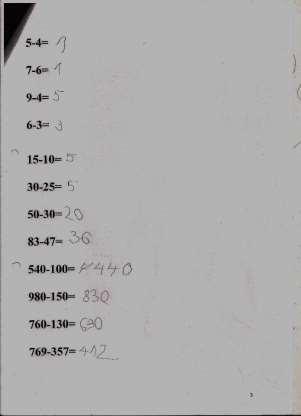 5-4= 1
7-6= 1
9-4= 5
6-3= 3
15-10= 5
30-25= 5
50-30= 20
83-47= 36
540-100= 440
980-150= 830
760-130= 630
769-357= 412